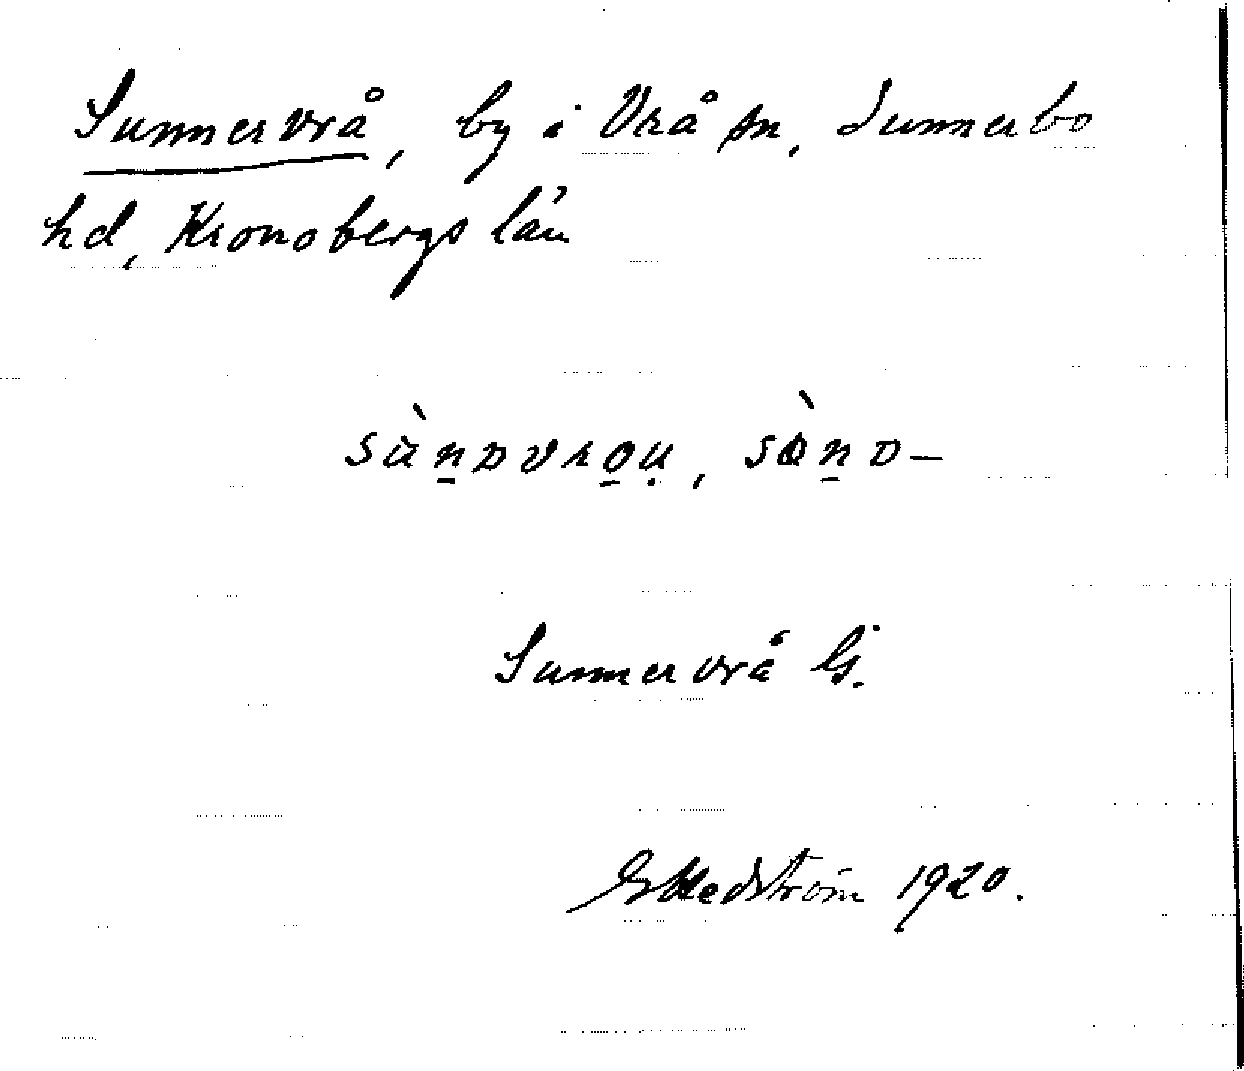 Sunnervrå, by i Vrå sn, Sunnerbo
hd, Kronobergs län
sùn̠ᴅvro̠ụ, sòn̠ᴅ–
Sunnervrå
G Hedström 1920.